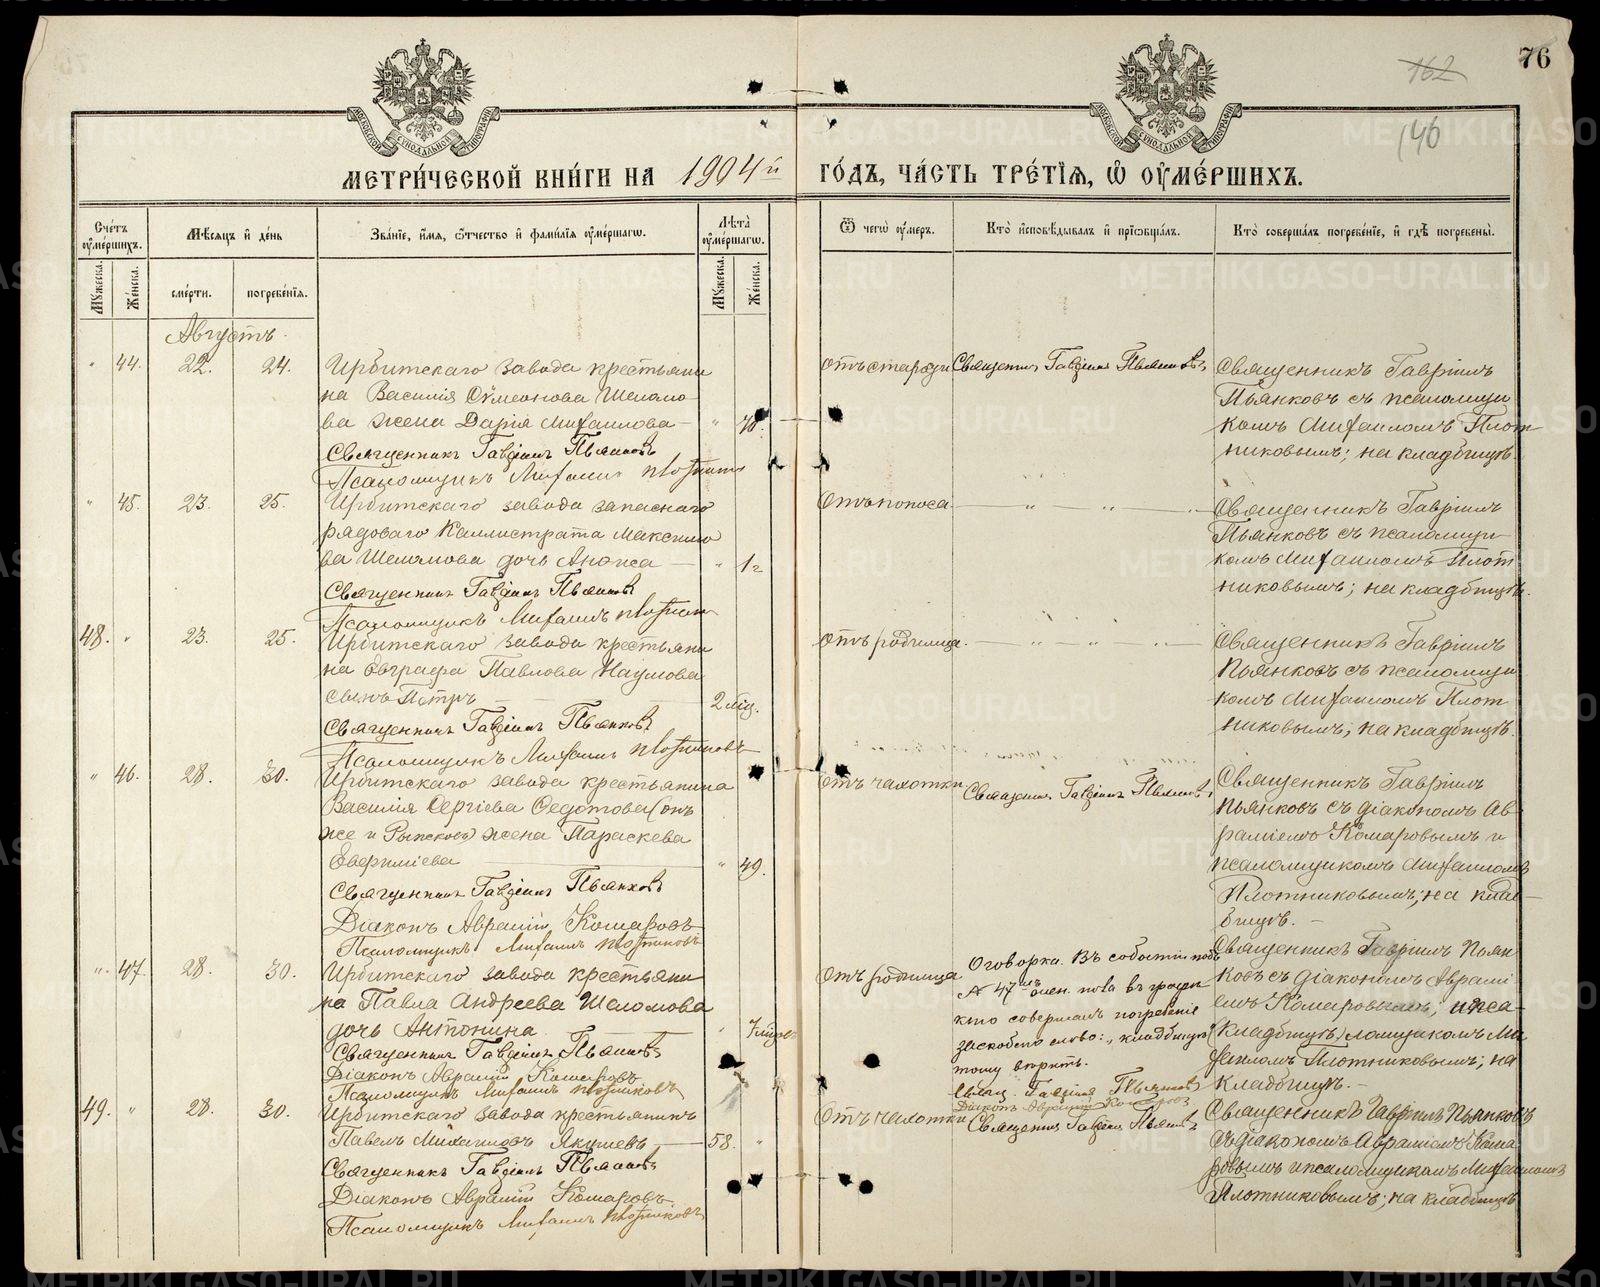 76
162
146
МЕТРИ́ЧЕСКОЙ КНИ́ГИ НА 1904й ГО́ДЪ, ЧА́СТЬ ТРЕ́ТІѦ, Ѡ ОУ҆МЕ́РШИХЪ.
Сче́тъ оу҆ме́ршихъ.
Мѣ́сѧцъ и҆ де́нь
Зва́нїе, и҆́мѧ, ѻ҆́тчество и҆ фами́лїѧ оу҆ме́ршагѡ.
Лѣ́та оу҆ме́ршагѡ.
Ѿ чегѡ̀ оу҆́меръ.
Кто̀ и҆сповѣ́дывалъ и҆ прїѡбща́лъ.
Кто̀ соверша́лъ погребе́нїе, и҆ гдѣ̀ погребены̀.
Мꙋ́жеска.
Же́нска.
сме́рти.
погребе́нїѧ.
Мꙋ́жеска.
Же́нска.
Августъ.
" 44. 22. 24. Ирбитскаго завода крестьяни
на Василія Сѵмеонова Шеломо
ва жена Дарія Михаилова —
Священникъ Гавріилъ Пьянковъ
Псаломщикъ Михаилъ Плотников
отъ старости
Священникъ Гавріилъ Пьянковъ
Священникъ Гавріилъ
Пьянковъ съ псаломщи
комъ Михаиломъ Плот
никовымъ; на кладбищѣ.
" 45. 23. 25. Ирбитскаго завода запаснаго
рядоваго Каллистрата Максимо
ва Шеломова дочь — " 1г
Священникъ Гавріилъ Пьянковъ
Псаломщикъ Михаилъ Плотников
Отъ поноса — " — " — "
Священникъ Гавріилъ
Пьянковъ съ псаломщи
комъ Михаиломъ Плот
никовымъ; на кладбищѣ.
48. " 23. 25. Ирбитскаго завода крестьяни
на Евграфа Павлова Наумова
сынъ Петръ — 2 мѣс.
Священникъ Гавріилъ Пьянковъ
Псаломщикъ Михаилъ Плотниковъ
отъ родимца. — " — " — "
Священникъ Гавріилъ
Пьянковъ съ псаломщи
комъ Михаиломъ Плот
никовымъ; на кладбищѣ.
" 46. 28. 30. Ирбитскаго завода крестьянина
Василія Сергіева Ѳедотова (онъ
же и Рычковъ) жена Параскева
Евѳиміева — " 49.
Священникъ Гавріилъ Пьянковъ
Діаконъ Аврамій Комаровъ
Псаломщикъ Михаилъ Плотниковъ
Отъ чахотки
Священникъ Гавріилъ Пьянковъ
Священникъ Гавріилъ
Пьянковъ съ діакономъ Ав
раміемъ Комаровымъ и
псаломщикомъ Михаиломъ
Плотниковымъ; на клад
бищѣ. —
". 47. 28. 30. Ирбитскаго завода крестьяни
на Павла Андреева Шеломова
дочь Антонина — "
Священникъ Гавріилъ Пьянковъ
Діаконъ Аврамій Комаровъ
Псаломщикъ Михаилъ Плотниковъ
Отъ родимца
Оговорка. Въ событіи подъ
№ 47 жен. пола въ графѣ
кто совершалъ погребеніе
заскоблено слово: „кладбищѣ"
тому вѣрить.
Свящ. Гавріилъ Пьянковъ
Діаконъ Аврамій Комаровъ
Священникъ Гавріилъ Пьян
ковъ съ діакономъ Аврамі
емъ Комаровымъ; и пса
(кладбищѣ) ломщикомъ Ми
хаиломъ Плотниковымъ; на
кладбищѣ. —
49. " 28. 30. Ирбитскаго завода крестьянинъ
Павелъ Михаиловъ Якушевъ — 58. "
Священникъ Гавріилъ Пьянковъ
Діаконъ Аврамій Комаровъ
Псаломщикъ Михаилъ Плотниковъ
Отъ чахотки
Священникъ Гавріилъ Пьянковъ
Священникъ Гавріилъ Пьянковъ
съ діакономъ Авраміемъ Кома
ровымъ и псаломщикомъ Михаиломъ
Плотниковымъ; на кладбищѣ
METRIKI.GASO-URAL.RU